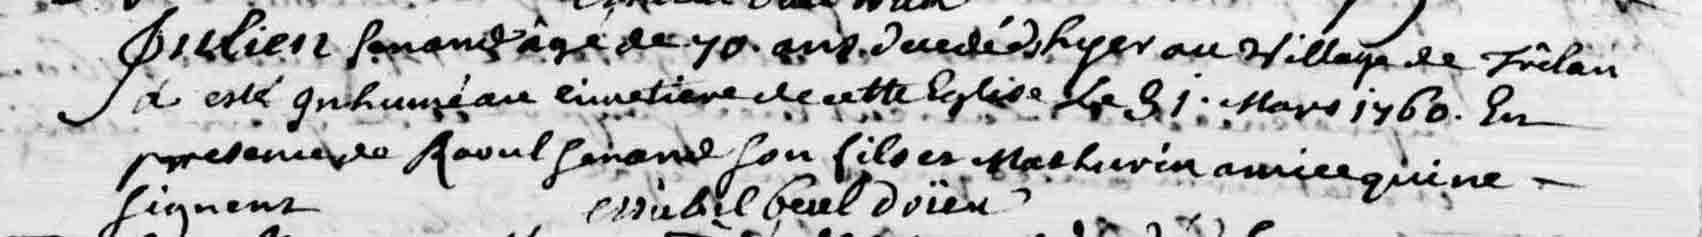 Julien Savand âgé de 70. ans decedé dhyer au Village de Trêlan
a esté Inhumé au cimetiere de cette Eglise Le 31. Mars 1760. En
presence de Raoul Savand son fils et Mathurin amice qui ne
signent doïen